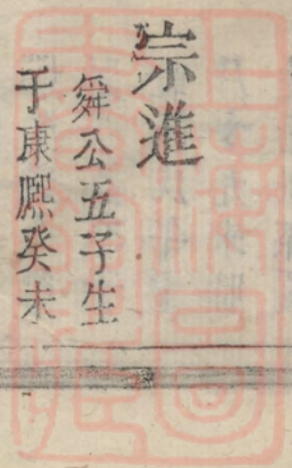 崇進
舜公五子生
于康熈癸未